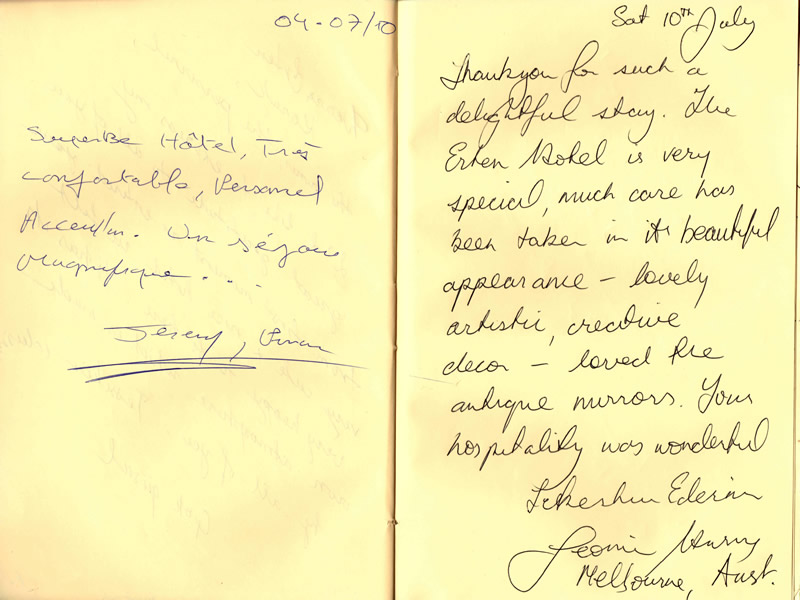 04-07/10
Superbe Hôtel, Très
confortable, Personnel
Un séjour
magnifique...
Jeremy,
Sat 10TH July
Thankyou for such a
delightful stay. The
Erten Hotel is very
special, much care has
been taken in its beautiful
appearance – lovely
artistic, creative
decor – loved the
antique mirrors. Your
hospitality was wonderful
Tekeshur Ederim
Leonie
Melbourne, Aust.